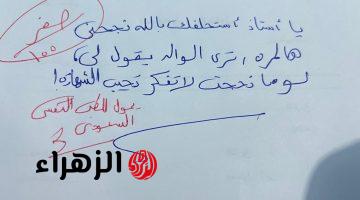 صفر
١٠٠
يا أستاذ أستحلفك بالله نجحني
هالمره، ترى الوالد يقول لي،
لو ما نجحت لا تفكر تجيب الشهادة!
يحول للطب النفسي
السعودي
الزهراء